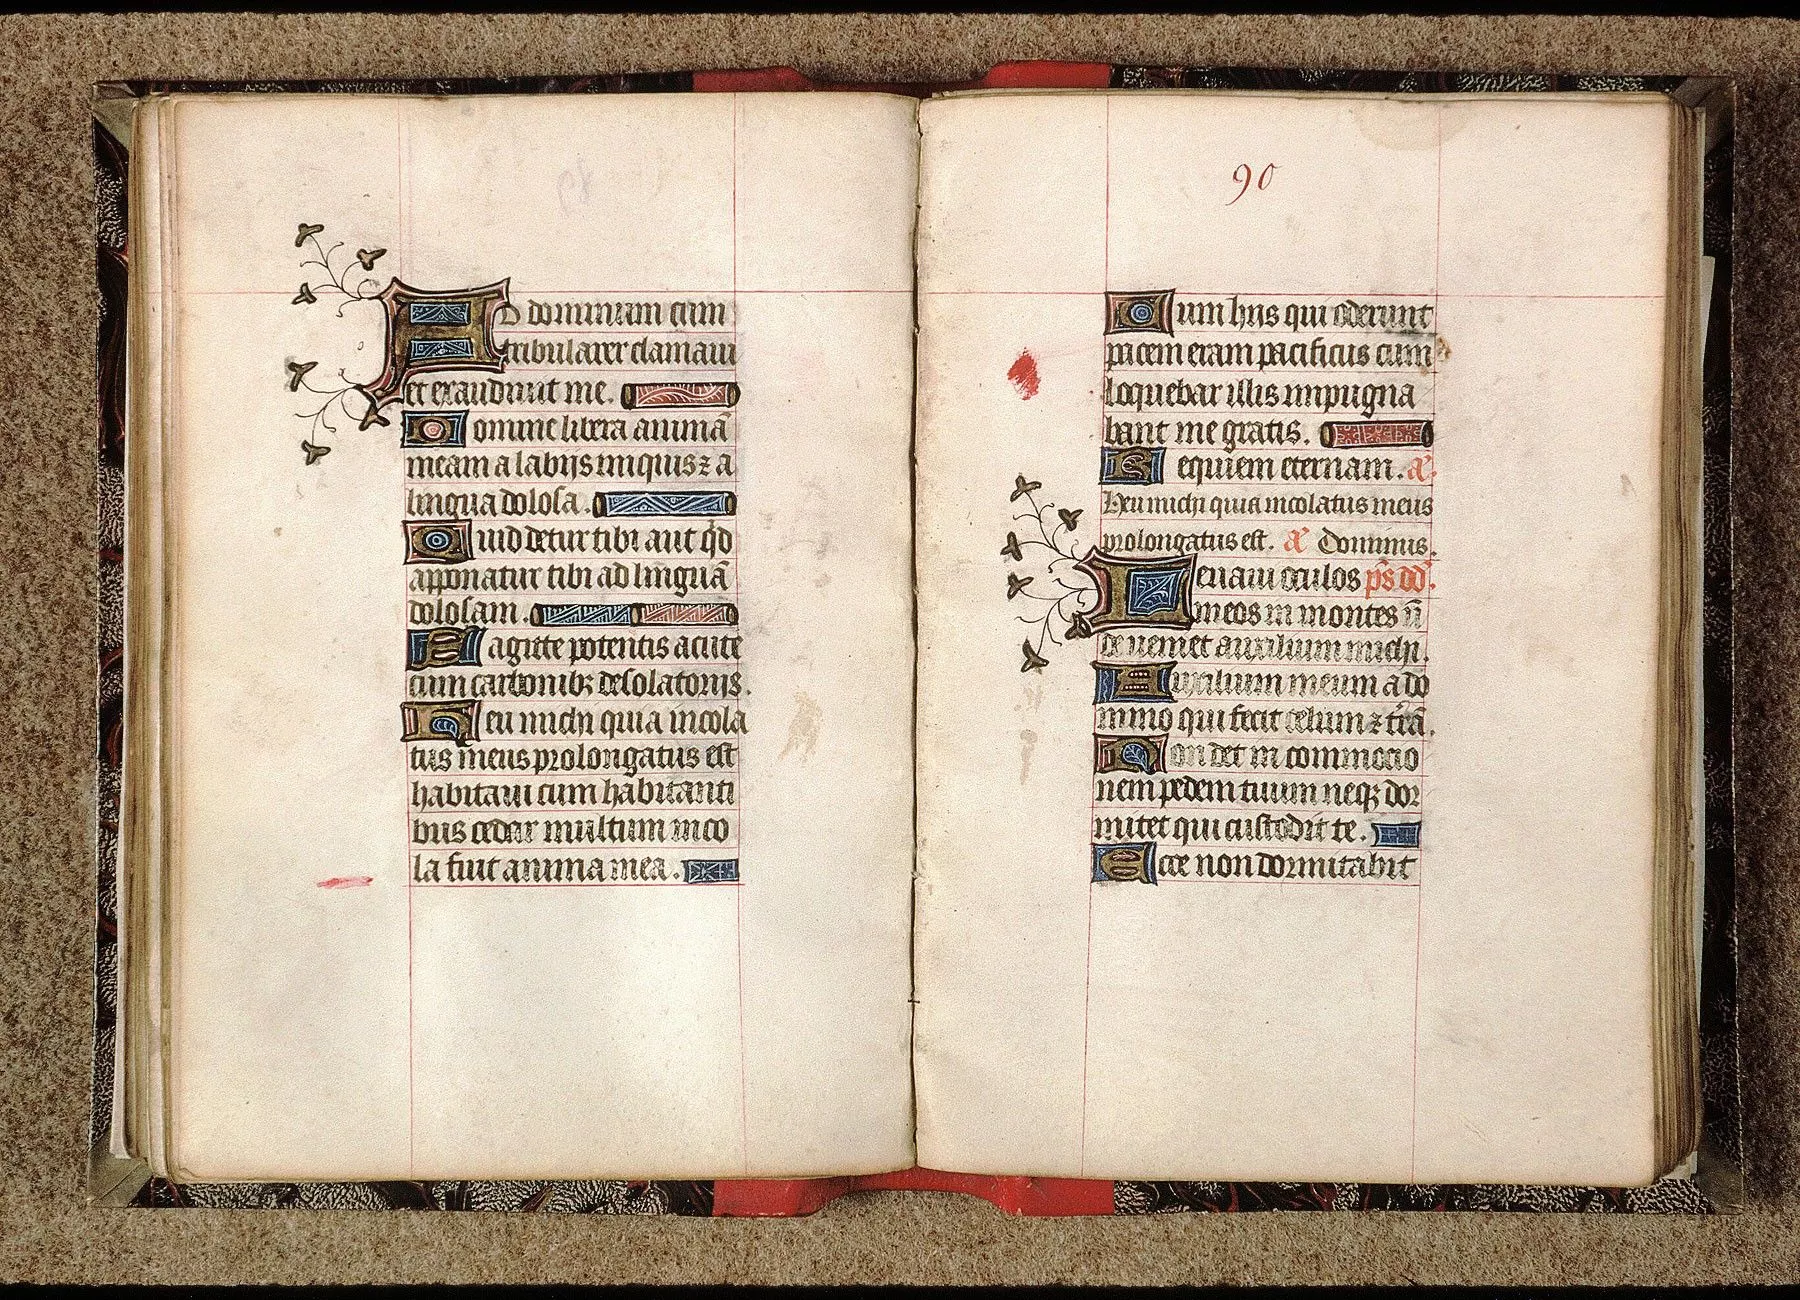 Ad dominum cum
tribularer clamaui
et exaudiuit me.
Domine libera animā
meam a labijs iniquis ⁊ a
lingua dolosa.
Quid detur tibi aut qd̄
apponatur tibi ad linguā
dolosam.
Sagitte potentis acute
cum carbonibꝫ desolatorijs.
Heu michi quia incola
tus meus prolongatus est
habitaui cum habitanti
bus cedar multum inco
la fuit anima mea.
90
Cum hijs qui oderunt
pacem eram pacificus cum
loquebar illis impugna
bant me gratis.
Requiem eternam. añ.
Heu michi quia incolatus meus
prolongatus est. añ Dominus.
Leuaui oculos p̄s dd̄.
meos in montes ū
de ueniet auxilium michi.
Auxilium meum a do
mino qui fecit celum ⁊ trā̄.
Non det in commocio
nem pedem tuum neqꝫ dor
mitet qui custodit te.
Ecce non dormitabit